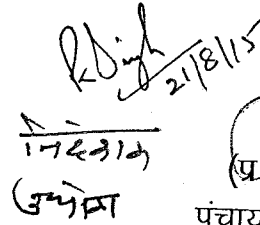 R Singh
21/8/15
निदेशक
उद्योग
(प्र.
पंचाय